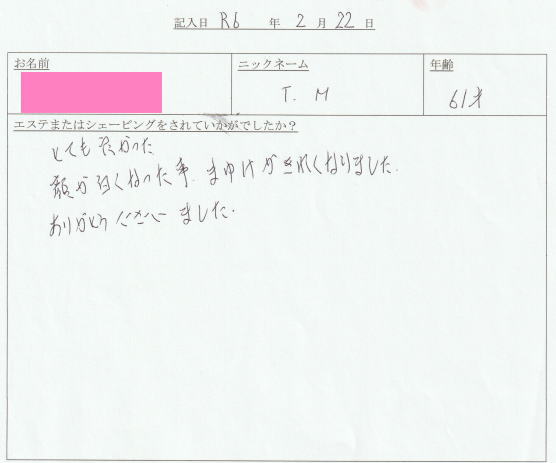 記入日 R6 年 2 月 22 日
お名前 ニックネーム 年齢
T. M 61才
エステまたはシェービングをされていかがでしたか？
とても よかった
顔が白くなった事、まゆげがきれいになりました。
ありがとうございました。